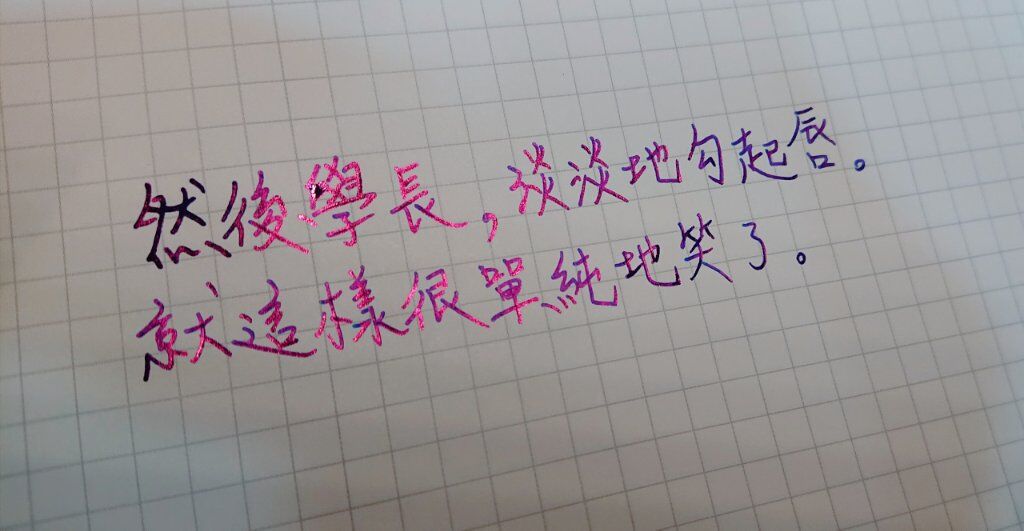 然後學長，淡淡地勾起唇。
就這樣很單純地笑了。